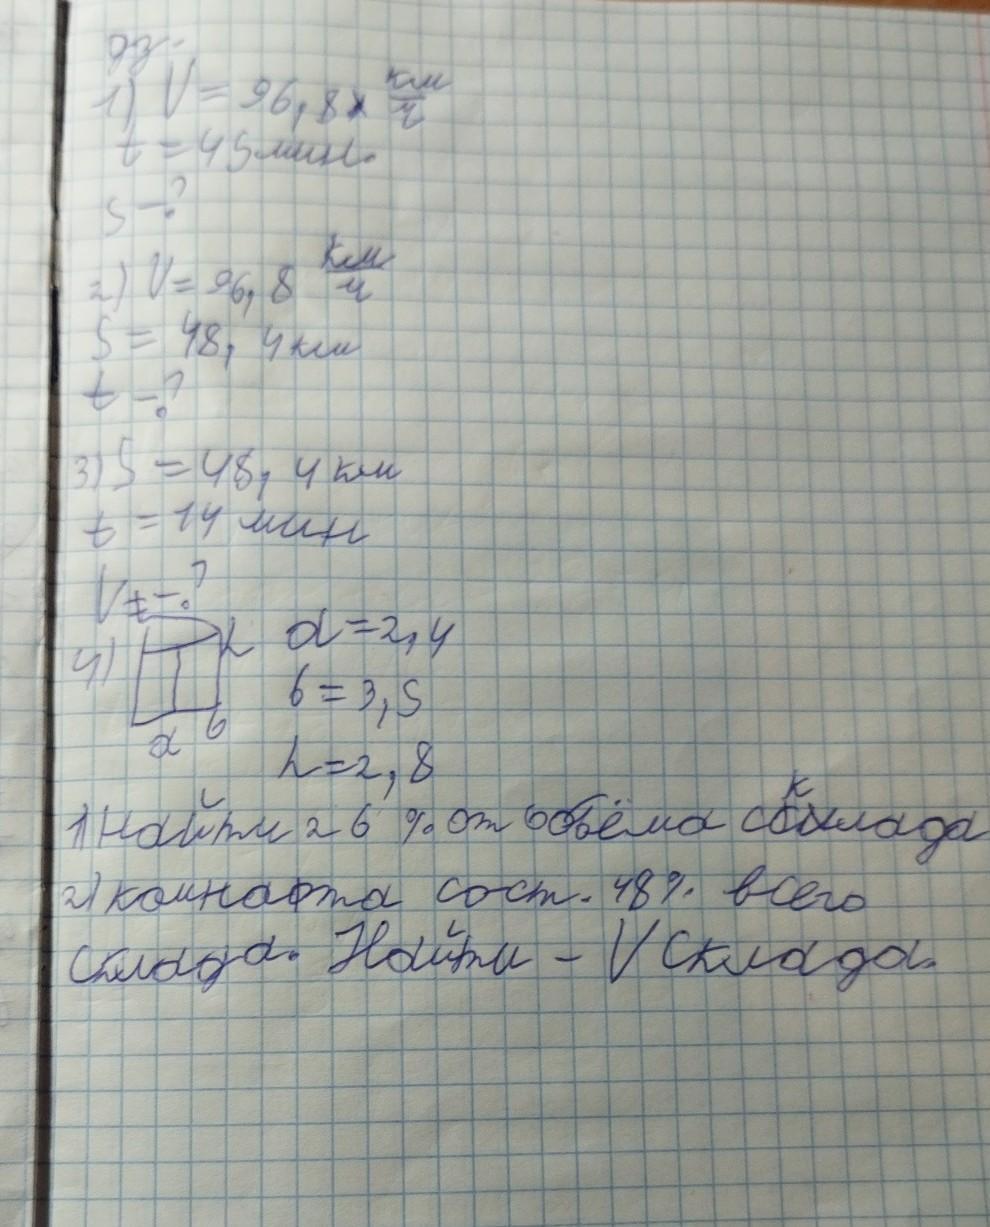 дз.
1) V = 96,8 км/ч
t = 45 мин.
S - ?
2) V = 96,8 км/ч
S = 48,4 км
t - ?
3) S = 48,4 км
t = 14 мин
V - ?
4) h a = 2,4
в = 3,5
a в
h = 2,8
1) Найти 26 % от объёма склада
2) комната сост. 48% всего
склада. Найти - V склада.